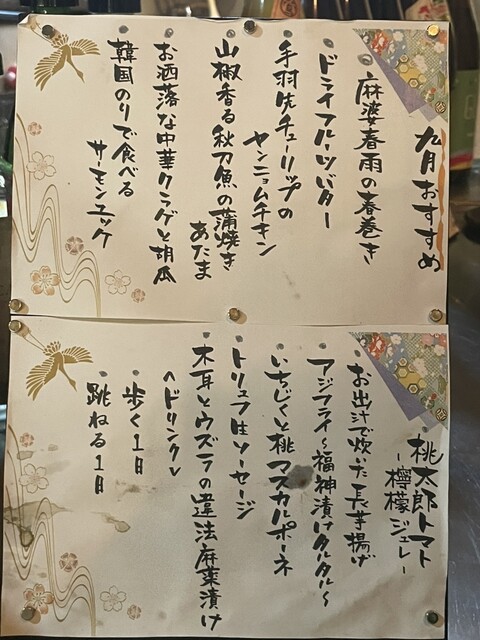 九月おすすめ
・麻婆春雨の春巻き
・ドライフルーツバター
・手羽先チューリップの
ヤンニョムチキン
・山椒香る秋刀魚の蒲焼き
あたま
・お洒落な中華クラゲと胡瓜
・韓国のりで食べる
サーモンユッケ
・桃太郎トマト
〜檸檬ジュレ〜
・お出汁で炊いた長芋揚げ
・アジフライ〜福神漬けタルタル〜
・いちじくと桃マスカルポーネ
・トリュフ生ソーセージ
・木耳とウズラの違法麻薬漬け
〈ドリンク〉
・歩く1日
・跳ねる1日